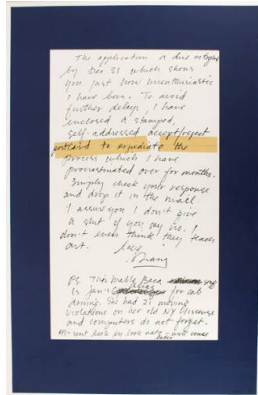 The application is due
by Dec 31 which shows
you just how unenthusiastic
I have been. To avoid
further delays, I have
enclosed a stamped,
self-addressed accept/reject
postcard to expediate the
process which I have
procrastinated over for months.
Simply check your response
and drop it in the mail.
I assure you I don't give
a shit if you say no. I
don't even think they teach
art.
PS. This
is Jan's alias for cab
driving. She had 21 moving
violations on her old NY license
and computers do not forget.